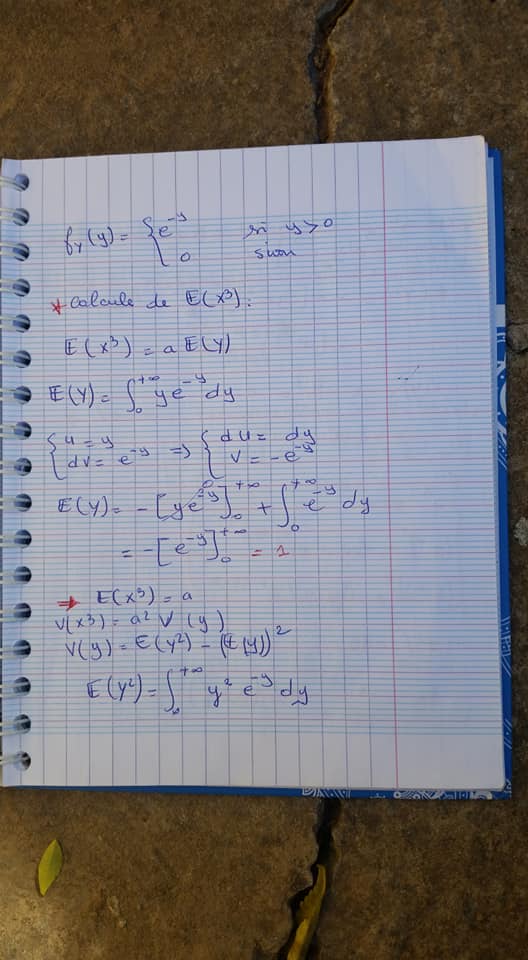 f_Y(y) = { e^{-y} si y > 0
0 sinon
* Calcule de E(x³):
E(x³) = a E(Y)
E(Y) = ∫₀^{+∞} y e^{-y} dy
{ u = y
dv = e^{-y} => { du = dy
v = -e^{-y}
E(Y) = - [y e^{-y}]₀^{+∞} + ∫₀^{+∞} e^{-y} dy
= - [e^{-y}]₀^{+∞} = 1
=> E(x³) = a
V(x³) = a² V(y)
V(y) = E(y²) - (E(y))²
E(Y²) = ∫₀^{+∞} y² e^{-y} dy